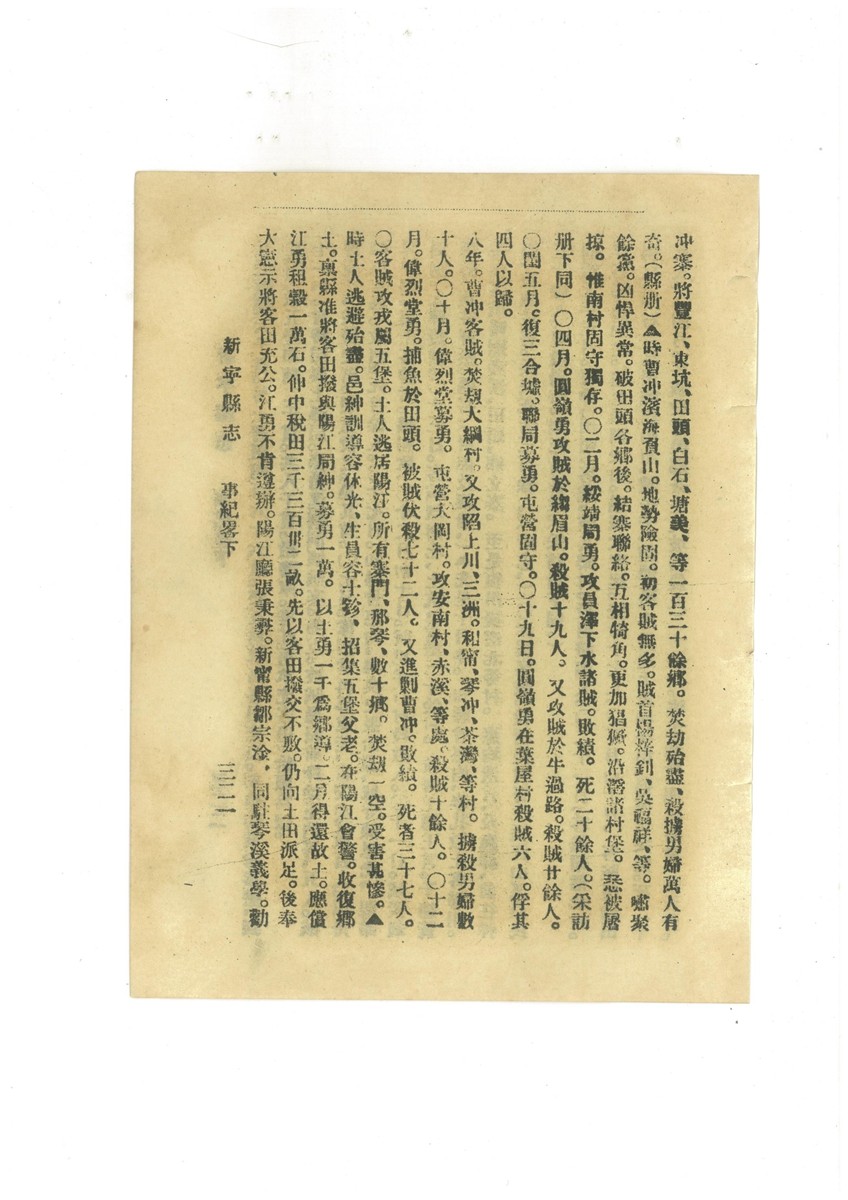 冲寨。將豐江、東坑、田頭、白石、塘美、等一百三十餘鄉。焚劫殆盡、殺擄男婦萬人有
奇。(縣册)▲時曹冲濱海負山。地勢險固。初客賊無多。賊首楊梓釗、吳福祥、等。嘯聚
餘黨。凶悍異常。破田頭各鄉後。結寨聯絡。互相犄角。更加猖獗。沿海諸村堡。悉被屠
掠。惟南村固守獨存。〇二月。綏靖局勇。攻員潭下水諸賊。敗績。死二十餘人。(采訪
册下同)〇四月。圓嶺勇攻賊於縐眉山。殺賊十九人。又攻賊於牛過路。殺賊廿餘人。
〇閏五月。復三合墟。聯局募勇。屯營固守。〇十九日。圓嶺勇在葉屋村殺賊六人。俘其
四人以歸。
八年。曹冲客賊。焚刼大綱村。又攻陷上川、三洲。和甯、琴冲、茶灣、等村。擄殺男婦數
十人。〇十月。偉烈堂募勇。屯營大岡村。攻安南村、赤溪、等處。殺賊十餘人。〇十二
月。偉烈堂勇。捕魚於田頭。被賊伏殺七十二人。又進剿曹冲。敗績。死者三十七人。
〇客賊攻戎屬五堡。土人逃居陽江。所有寨門、那琴、數十鄉。焚刼一空。受害甚慘。▲
時土人逃避殆盡。邑紳訓導容休光、生員容士㐱、招集五堡父老。在陽江會警。收復鄉
土。稟縣准將客田撥與陽江局紳。募勇一萬。以土勇一千爲鄉導。二月得還故土。應償
江勇租穀一萬石。伸中稅田三千三百卌二畝。先以客田撥交不敷。仍向土田派足。後奉
大憲示將客田充公。江勇不肯遵辦。陽江廳張秉彝。新甯縣鄒宗淦、同駐琴溪義學。勸
新寧縣志 事紀畧下 三二一